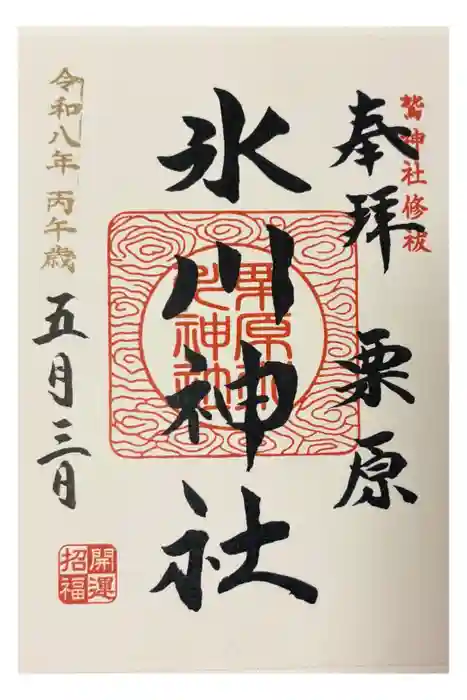 鷲神社修祓
奉拝 栗原
氷川神社
栗原氷川神社
令和八年 丙午歳 五月三日
開運招福